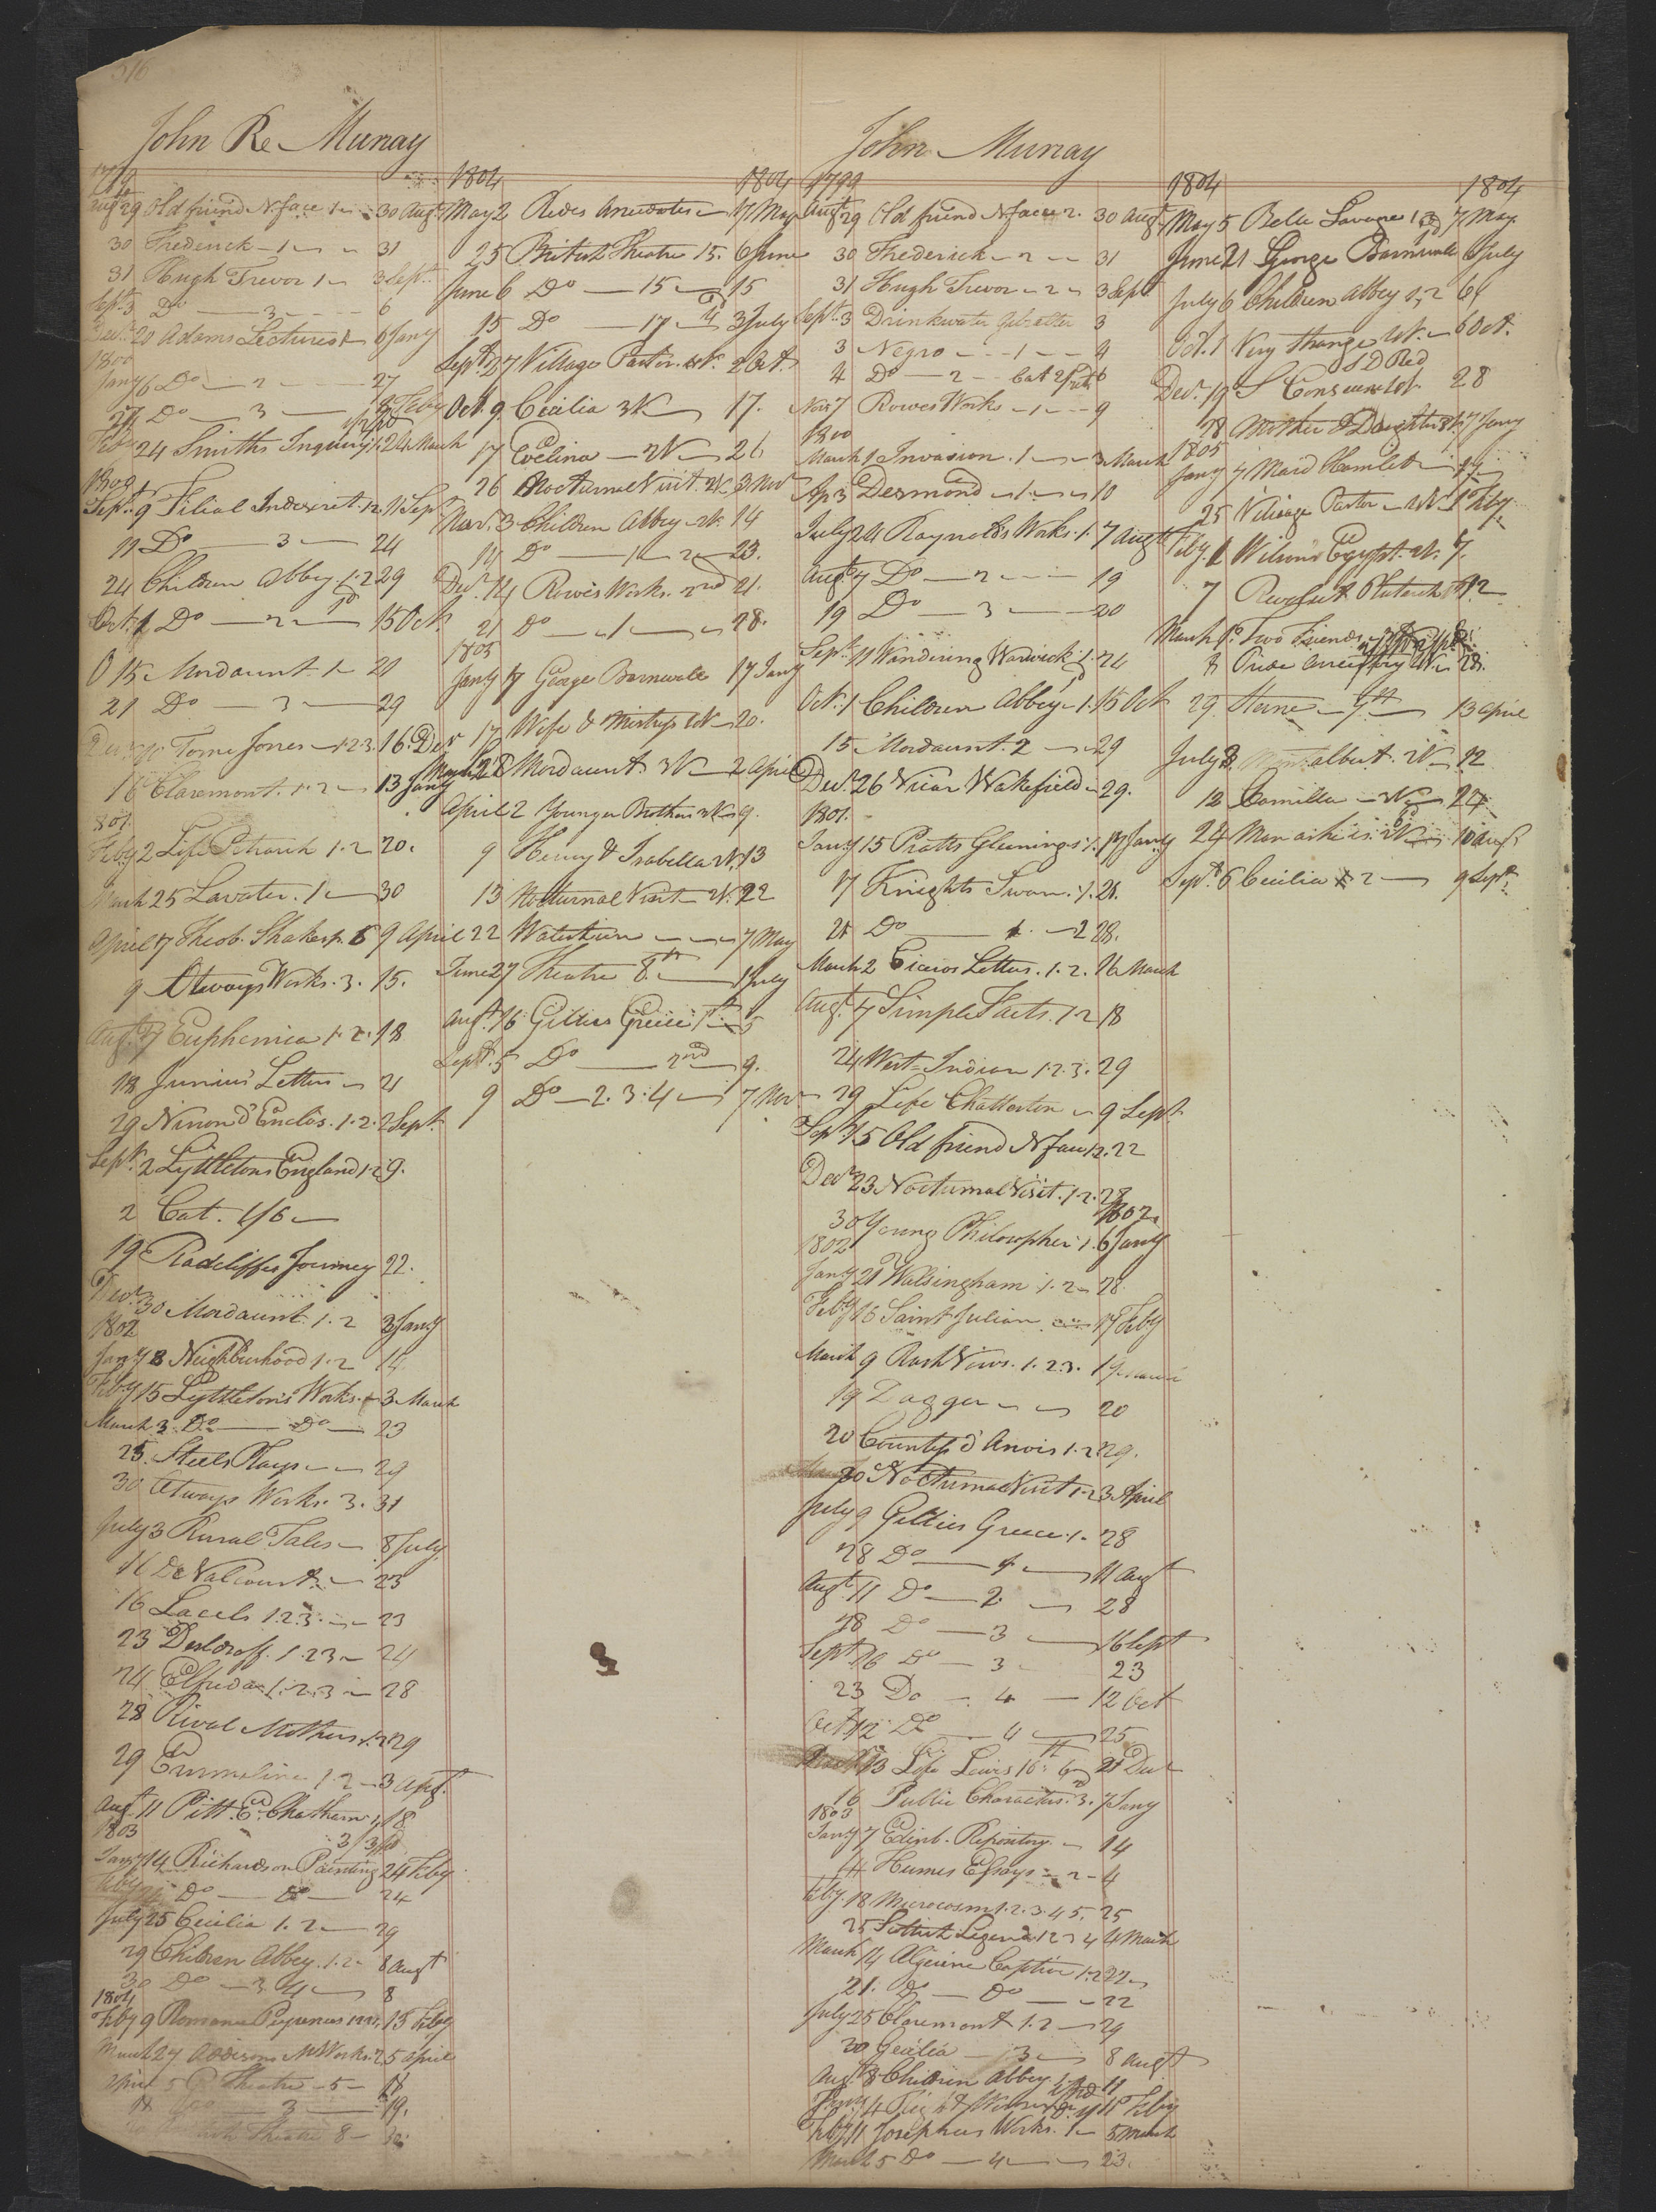 John R. Murray
1799
Augt 29 Old friend N face 1 30 Augt
30 Frederick 1 31
31 Hugh Trevor 1 3 Sept.
Sept. 3 Do 3 6
Decr. 20 Adams Lectures 1 6 Jany
1800
Jany 6 Do 2 27
27 Do 3 Feby
Feby 24 Smiths Inquiry 1. 24 March
Sept. 9 Filial Indiscret. 1.2. 11 Sept
11 Do 3 24
24 Children Abbey 1.2 29
Oct. 1 Do 2 15 Oct.
O 15 Mordaunt 1 21
21 Do 3 29
Tome Jones 1.2.3. 16 Decr
16 Claremont 1.2 13 Jany
1801
Feby 2 Life Petrarch 1.2 20.
March 25 Lavater. 1 30
April 7 Theob. Shakesp. 6 9 April
9 Otways Works. 3. 15.
Augt. 7 Euphemia 1.2. 18
18 Junius Letters 21
29 Ninon d'Enclos. 1.2. 2 Sept.
Sept. 2 Lyttletons England 1.2 9.
2 Cat. 1/6
19 Radcliffes Journey 22.
Decr. 30 Mordaunt. 1.2 3 Jany
1802
Jany 8 Neighbourhood 1.2 14
Feby 15 Lyttletons Works. 3 March
March 3 Do Do 23
25. Steels Plays 29
30 Otways Works. 3. 31
July 3 Rural Tales 8 July
16 De Valcourt 23
16 1.2.3. 23
23 1.2.3 24
24 Elfrida. 1.2.3 28
28 Rival Mothers 1.2 29
29 Emmeline 1.2 3 Augt.
Augt. 11 Pitt E. Chatham 1, 18
1803 3/3/pd
Jany 14 Richardson Painting 24 Feby
Feby Do Do 24
July 25 Cecilia 1.2 29
29 Children Abbey. 1.2 8 Augt
30 Do 3. 4 8
1804
Feby 9 Romance Pyrenees 13 Feby
March 27 Addisons Works. 5 April
April 5 Theatre 5
3 19.
Theatre 8
1804 1804
May 2 Anecdotes 17 May
25 British Theatre 15. 6 June
June 6 Do 15 15
15 Do 17 3 July
Sept. 27 Village Pastor. 2 Oct.
Oct. 9 Cecilia 17.
17 Evelina 26
26 Nocturnal Visit. 3 Nov
Nov. 3 Children Abbey 14
14 Do 1 2 23.
Decr. 14 Rowes Works. 2nd 21.
21 Do 1 28.
1805
Jany 17 George Barnwell 17 Jany
17 Wife & Mistress 20.
March 28 Mordaunt. 2 April
April 2 Younger Brother 9.
9 Henry & Isabella 13
13 Nocturnal Visit 22
22 7 May
June 27 Theatre 8th 1 July
Augt. 16 Gillies Greece 1st 5
Sept. 5 Do 2nd 9.
9 Do 2. 3. 4 7 Nov
John Murray
1799
Augt 29 Old friend N face 2. 30 Augt
30 Frederick 2 31
31 Hugh Trevor 2 3 Sept
Sept. 3 Drinkwater Gibralter 3
3 Negro 1 4
4 Do 2 Cat 6
Novr 7 Rowes Works 1 9
1800
March 1 Invasion. 1 3 March
Ap 3 Desmond 1 10
July 24 Raynolds Works. 1. 7 Augt
Augt 7 Do 2 19
19 Do 3 20
Sept. 11 Wandering Warwick 1. 24
Oct. 1 Children Abbey 1. 15 Oct
15 Mordaunt. 2 29
Decr. 26 Vicar Wakefield 29.
1801.
Jany 15 Pratts Gleanings 1. 17 Jany
17 Knights Swan. 1. 21.
21 Do 2 28.
March 2 Ciceros Letters. 1.2. 16 March
Augt. 7 Simple Facts. 1.2 18
24 West Indian 1.2.3. 29
29 Life Chatterton 9 Sept.
Sept. 15 Old friend N face 1.2. 22
Decr 23 Nocturnal Visit. 1.2. 28
1802
30 Young Philosopher 1. 6 Jany
1802
Jany 21 Walsingham 1.2 28.
Feby 16 Saint Julian 17 Feby
March 9 Rash Vows. 1.2.3. 19 March
19 Dagger 20
20 Countess d'Anois 1.2 29.
30 Nocturnal Visit 1.2 3 April
July 9 Gillies Greece 1. 28
28 Do 1 11 Augt
Augt 11 Do 2 28
28 Do 3 16 Sept
Sept. 16 Do 3 23
23 Do 4 12 Oct
Oct. 12 Do 4 25
13 Life Lewis 16th 6 21 Decr
16 Public Characters. 3. 7 Jany
1803
Jany 7 Edinb. Repository 14
14 Humes Essays 2 4
Feby. 18 Microcosm 1.2.3.4.5. 25
25 Scottish Legend 1.2 4 March
March 14 Algerine Captive 1.2 22
21. Do Do 22
July 25 Claremont 1.2 29
29 Cecilia 3 8 Augt
Augt 8 Children Abbey 11
Feby
Feby 11 Josephus Works. 1 5 March
March 5 Do 4 23.
1804 1804
May 5 7 May
June 21 George Barnwell 6 July
July 6 Children Abbey 1,2 6
Oct. 1 Very Strange 6 Oct.
Decr. 19 28
28 Mother & Daughter 7 Jany
1805
Jany 7 Maid Hamlet 17
25 Village Pastor 1 Feby
Feby. 1 Wilsons Egypt 7.
7 Plutarch 12
March 1 Two Friends
8 Pride Ancestry 28.
29 Sterne 9th 13 April
July 8 Montalbert 12
12 Camilla 24
24 Man as he is 10 Augt
Sept. 6 Cecilia 2 9 Sept.